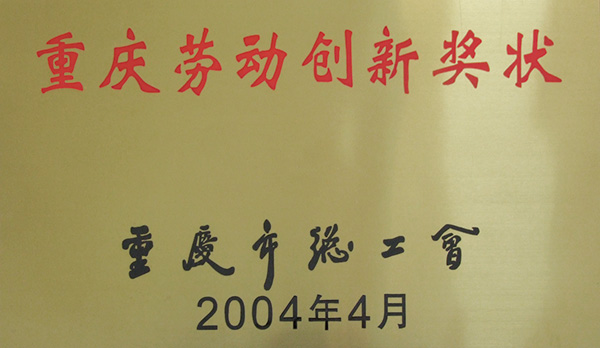 重庆劳动创新奖状
重慶市總工會
2004年4月